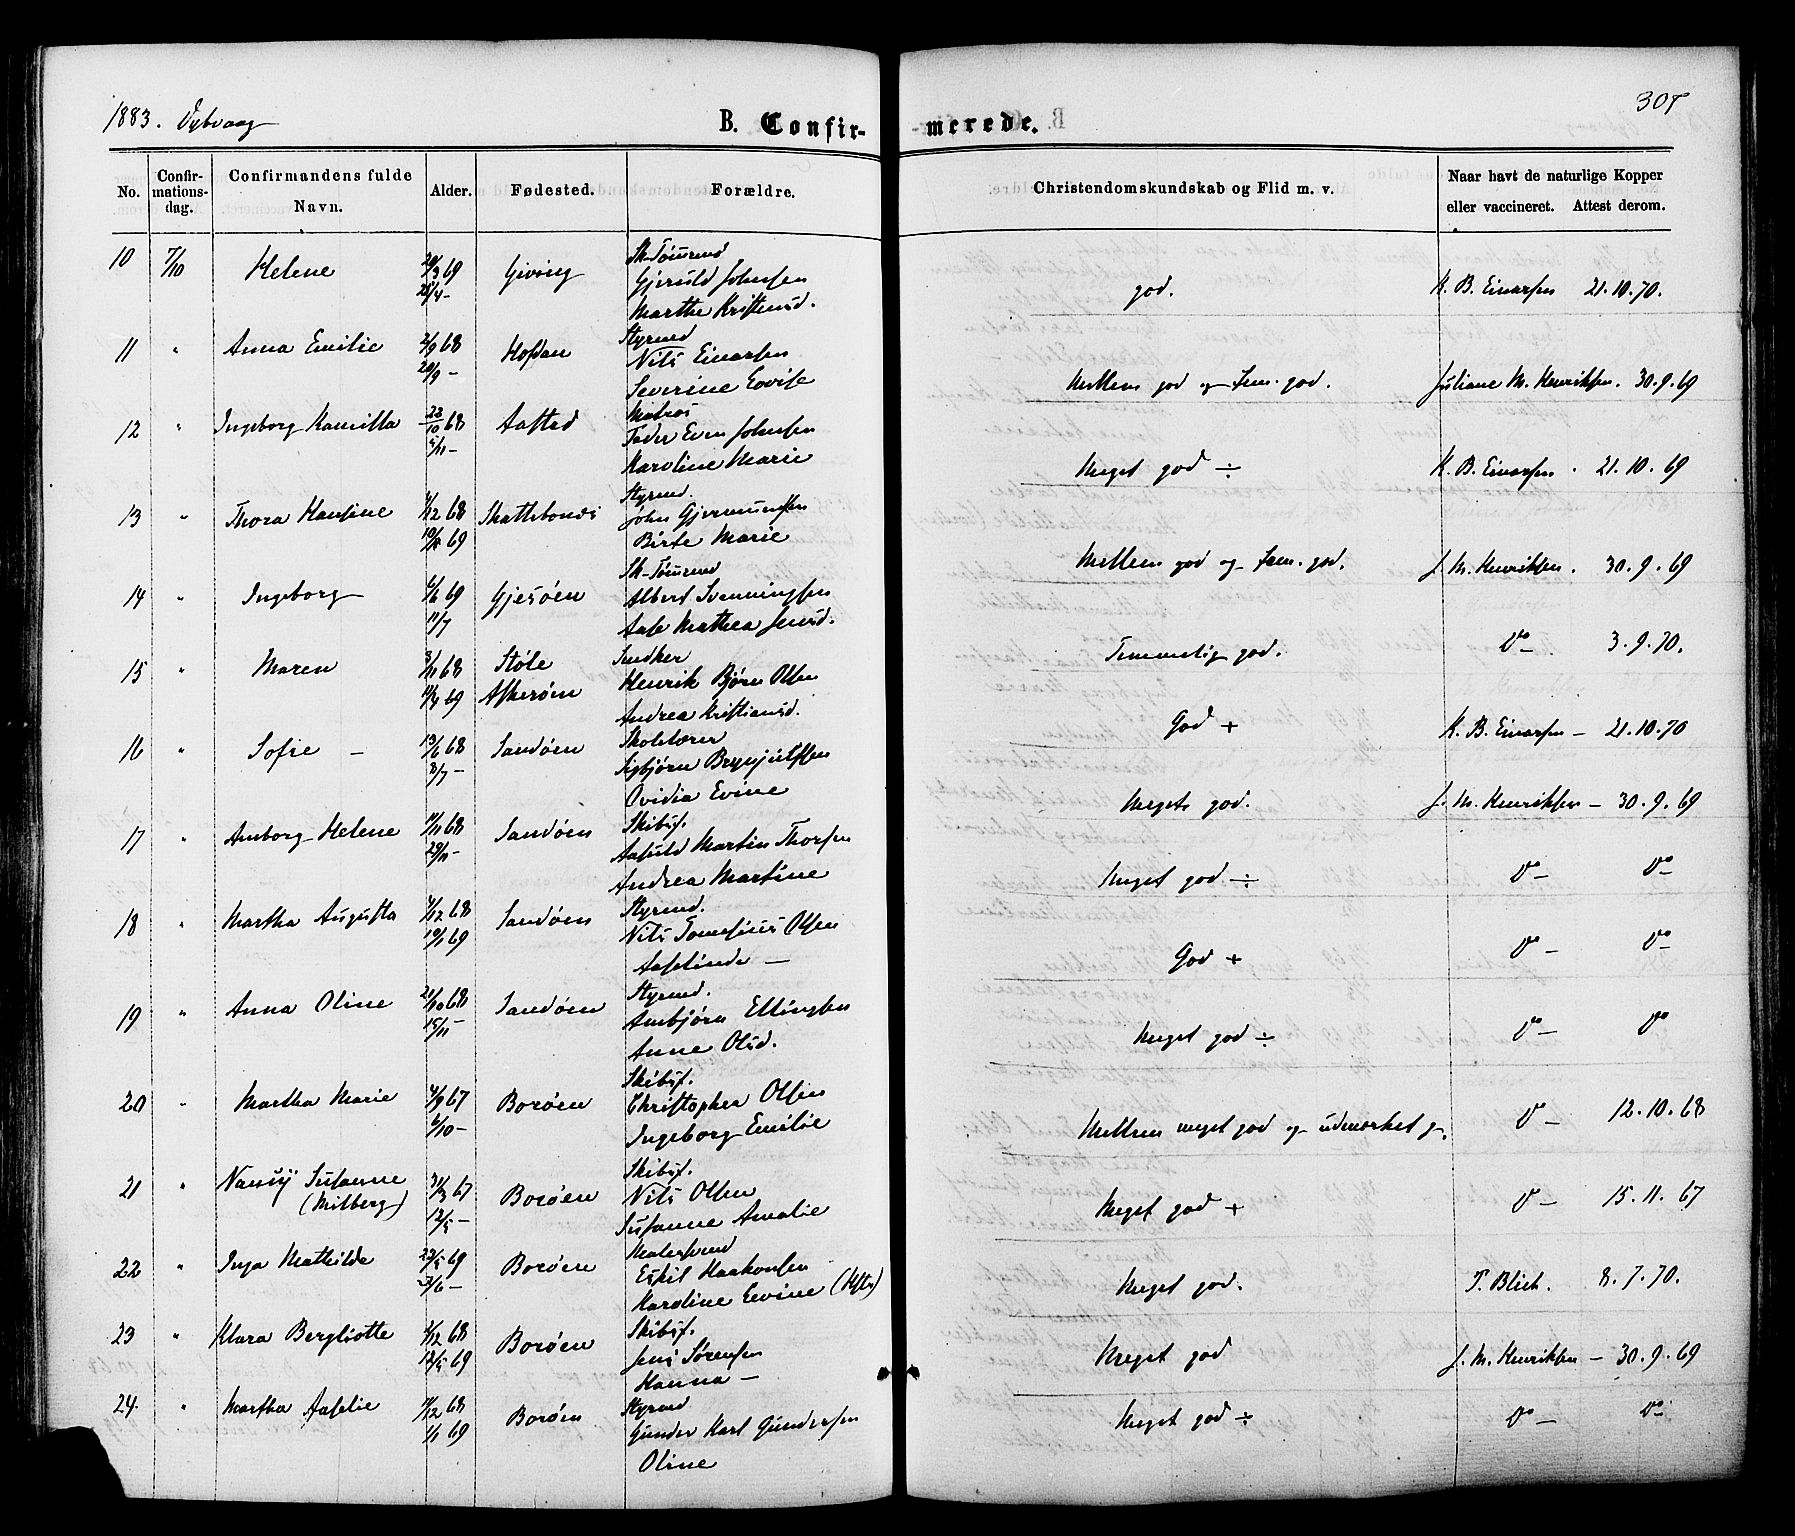 1883. Dybvaag
B. Confir- merede.
307
No. Confir-mations-dag. Confirmandens fulde Navn. Alder. Fødested. Forældre. Christendomskundskab og Flid m. v. Naar havt de naturlige Kopper eller vaccineret. Attest derom.
10 7/10 Helene 3 69 Giving Sk-Tømrmd
4- Gjeruld Johnsen god. K. B. Einarsen 21.10.70.
Marthe Kristensd.
11 " Anna Emilie 2/9 68 Holdan Styrmd
20/9 - Nils Einarsen
Severine Lovise Mellem god og tem. god. Juliane M. Henriksen. 30.9.69
12 " Ingeborg Kamilla 22/10 68 Aasted Matros
5/11 - Peder Even Johnsen
Karoline Marie Meget god ÷ K. B. Einarsen. 21.10.69
13 " Thora Hansine 12 68 Styrmd.
69 John Gjermunsen
Birte Marie Mellem god og tem. god. J. M. Henriksen. 30.9.69
14 " Ingeborg 6/6 69 Gjesøen Sk-Tømrmd
11/7 Albert Svenningsen
Aase Mathea Jensd. Temmelig god. Do - 3.9.70.
15 " Maren 11 68 Støle Snedker
69 Askerøen Henrik Bjørn Olsen
Andrea Kristiansd. God + K. B. Einarsen - 21.10.70
16 " Sofie - 19/6 68 Sandøen Skolelærer
8/7 - Sigbjørn Brynjulfsen
Ovidia Evine Megets god. J. M. Henriksen - 30.9.69
17 " Amborg Helene 11/11 68 Sandøen Skibsf.
29/11 - Aasuld Martin Thorsen
Andrea Martine Meget god ÷ Do - Do -
18 " Martha Augusta 4/12 68 Sandøen Styrmd.
10/1 69 Nils Tomesius Olsen
Aaselinde - God + Do - Do -
19 " Anna Oline 21/10 68 Sandøen Styrmd.
15/11 - Ambjørn Ellingsen
Anne Olsd. Meget god ÷ Do - Do
20 " Martha Marie 4/9 67 Borøen Skibsf.
6/10 - Christopher Olsen
Ingeborg Emilie Mellem meget god og udmærket g. Do - 12.10.68
21 " Nancy Susanne 31/3 67 Borøen Skibsf.
(Milberg) 12/5 - Nils Olsen
Susanne Amalie Meget god + Do - 15.11.67
22 " Inga Mathilde 22/5 69 Borøen
/6 - Eskil Haakonsen
Karoline Eevine Meget god. T. Blich. 8.7.70.
23 " Klara Bergliotte 12 68 Borøen Skibsf.
13/5 69 Jens Sørensen
Hanna - Meget god J. M. Henriksen - 30.9.69
24. " Martha Aaselie 12 68 Borøen Styrmd
1/1 69 Gunder Karl Gundersen
Oline Meget god ÷ Do - Do -